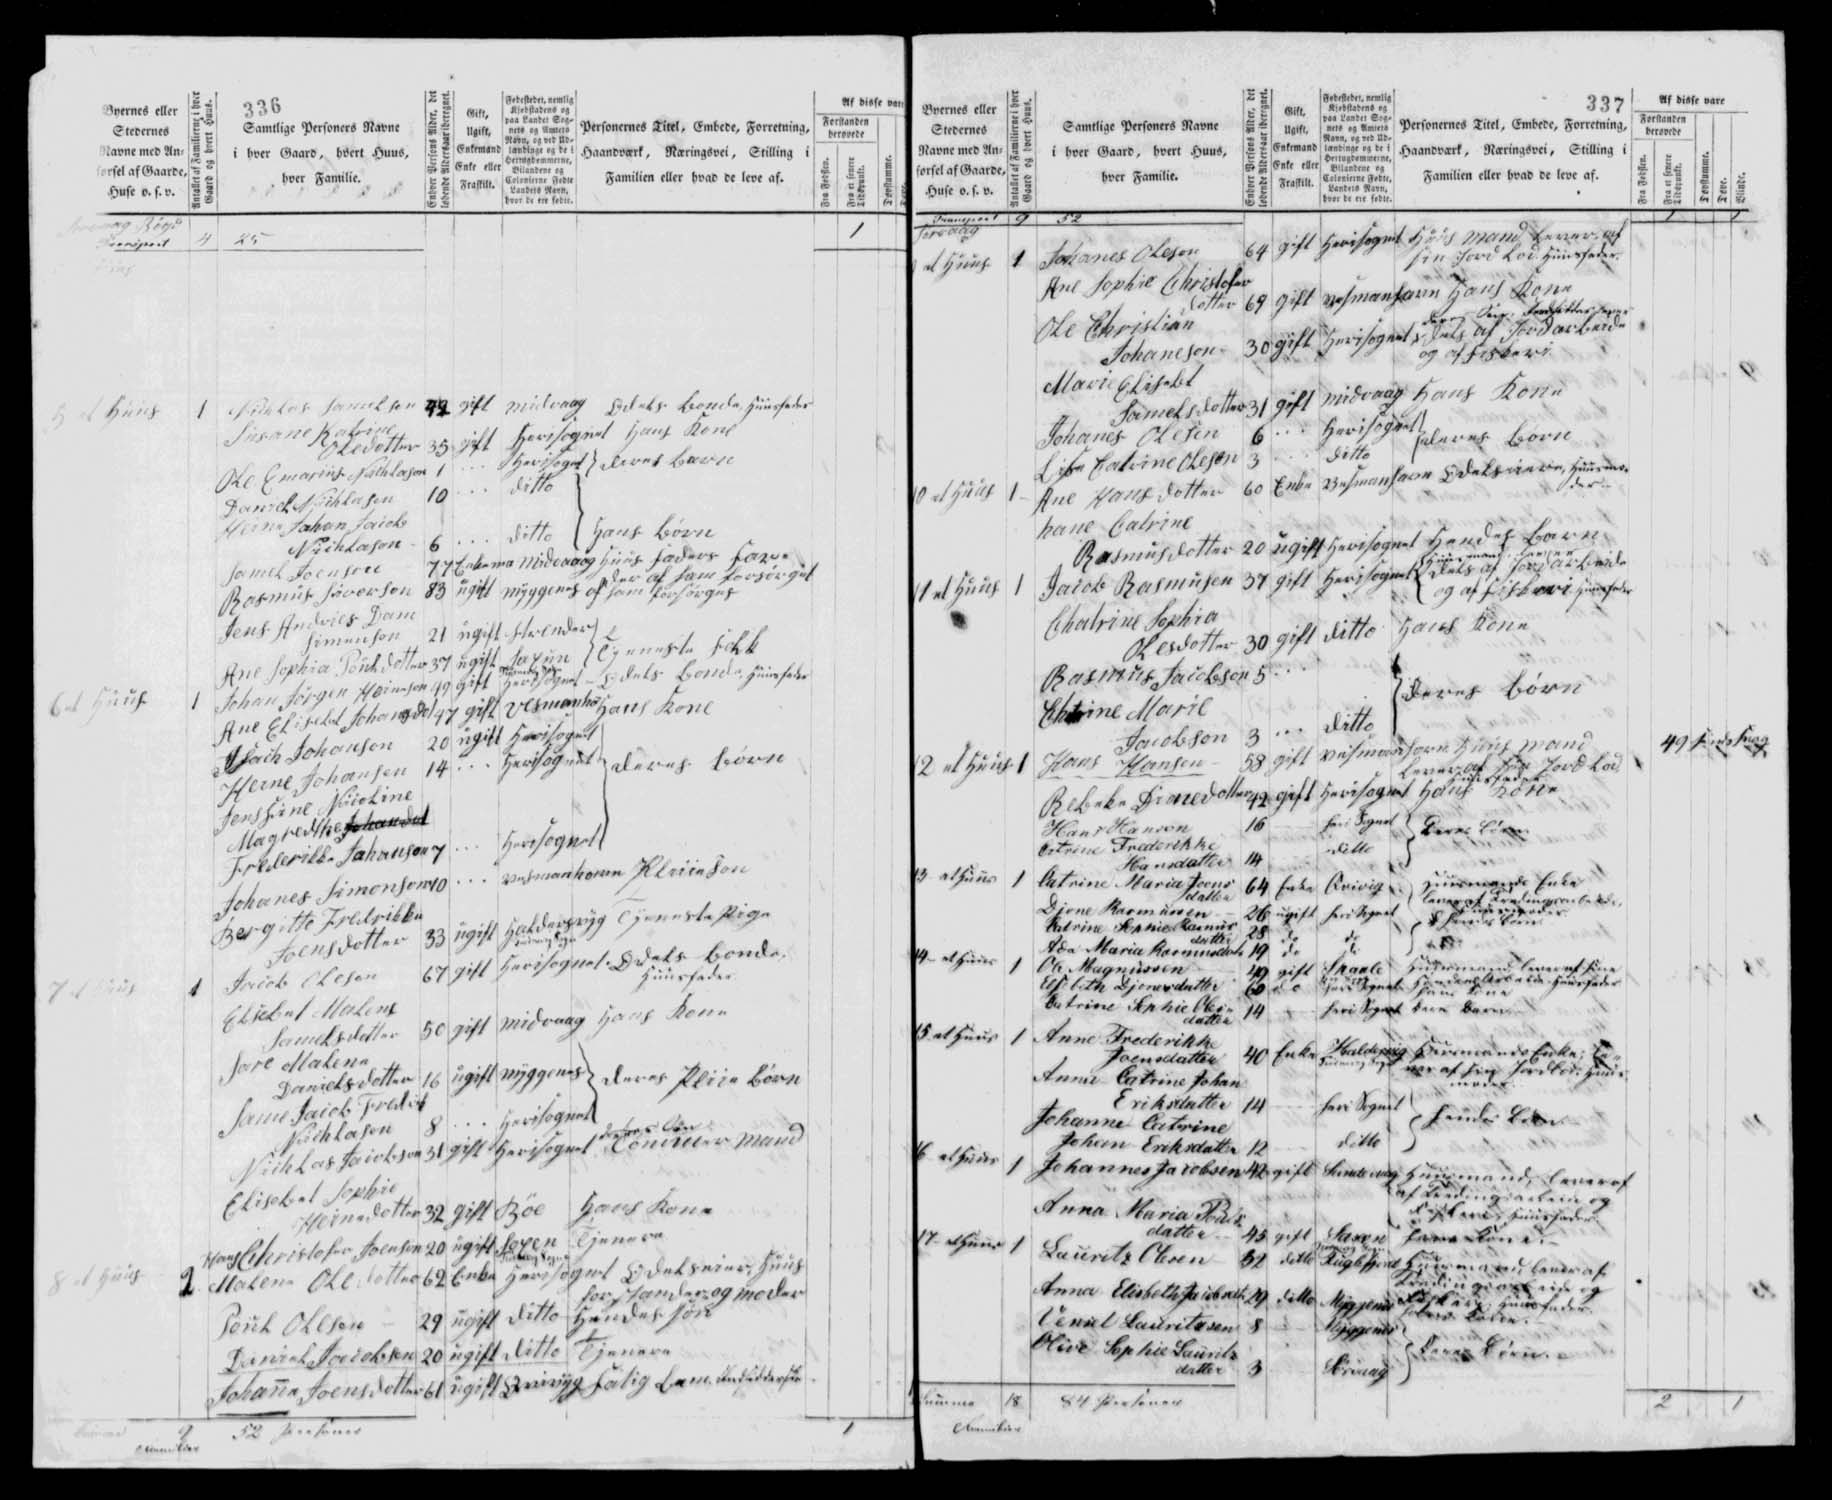 336
Byernes eller
Stedernes
Navne med An-
førsel af Gaarde,
Huse o. s. v.
Antallet af Familierne i hver
Gaard og hvert Huus.
Samtlige Personers Navne
i hver Gaard, hvert Huus,
hver Familie.
Enhver Persons Alder, det
løbende Aldersaar iberegnet.
Gift,
Ugift,
Enkemand
Enke eller
Fraskilt.
Fødestedet, nemlig
Kjøbstadens og
paa Landet Sog-
nets og Amtets
Navn, og ved Ud-
lændinge og de i
Hertugdømmerne,
Bilandene og
Colonierne Fødte,
Landets Navn,
hvor de ere fødte.
Personernes Titel, Embede, Forretning,
Haandværk, Næringsvei, Stilling i
Familien eller hvad de leve af.
Af disse vare
Forstanden
berøvede
Fra Fødslen.
Fra et senere
Tidspunkt.
Døvstumme.
Transport 4 25 1
5 et Huus 1 Nichlas Samelson 42 gift midvaag Odels bonde, Huusfader
Susane Katrine
Olesdotter 35 gift Herisognet Hans Kone
Ole Emarius Nichlason 1 ... Herisognet deres Barn
Daniel Nichlasen 10 ... ditto
Heine Johan Jacob
Nichlason 6 ... ditto Hans Börn
Samel Joenson 77 Enkema Midvaag Huus Faders Fa
der af ham forsörget
Rasmus Siverson 83 ugift myggenes af ham forsörges
Jens Andries Dam
Simonson 21 ugift Strender
Ane Sophia Poulsdotter 37 ugift Saxun Tjeneste Folk
6 et Huus 1 Johan Jörgen Heineson 49 gift Herisognet Odels bonde, Huusfader
Ane Elisebet Johansdot 47 gift Vesmanhö Hans Kone
Isach Johanson 20 ugift Herisognet
Heine Johansen 14 ... Herisognet deres börn
Jensine Nicoline
Magrethe
Frederikke Johanson 7 ... Herisognet
Johanes Simonson 10 ... vesmanhavn Pleieson
Bergitte Fredrikke
Joensdotter 33 ugift Haldersvyg Tjeneste Pige
7 et Huus 1 Jacob Olesen 67 gift Herisognet Odels bonde,
Huusfader
Elisebet Malene
Samelsdotter 50 gift midvaag Hans Kone
Sare Malene
Danielsdotter 16 ugift myggenes deres Pleie börn
Same Jacob Fredrik
Nichlasen 8 ... Herisognet
Nichlas Jacobson 31 gift Herisognet mand
Elisebet Sophie
Heinesdotter 32 gift Böe Hans Kone
Hans Christofer Joenson 20 ugift Soxen Tjenere
8 et Huus 2 Malene Olesdotter 62 Enke Herisognet Odelseier, Huus
forstander og moder
Poul Olesen 29 ugift ditto Hendes sön
Daniel Jacobsen 20 ugift ditto Tjenere
Johanne Joensdotter 61 ugift Qvivyg Fatig Lem
9 52 Personer 1
Familier
337
Byernes eller
Stedernes
Navne med An-
førsel af Gaarde,
Huse o. s. v.
Antallet af Familierne i hver
Gaard og hvert Huus.
Samtlige Personers Navne
i hver Gaard, hvert Huus,
hver Familie.
Enhver Persons Alder, det
løbende Aldersaar iberegnet.
Gift,
Ugift,
Enkemand
Enke eller
Fraskilt.
Fødestedet, nemlig
Kjøbstadens og
paa Landet Sog-
nets og Amtets
Navn, og ved Ud-
lændinge og de i
Hertugdømmerne,
Bilandene og
Colonierne Fødte,
Landets Navn,
hvor de ere fødte.
Personernes Titel, Embede, Forretning,
Haandværk, Næringsvei, Stilling i
Familien eller hvad de leve af.
Af disse vare
Forstanden
berøvede
Fra Fødslen.
Fra et senere
Tidspunkt.
Døvstumme.
Døve.
Blinde.
Transport 9 52 1 1
Sørvaag
et Huus 1 Johanes Oleson 64 gift Herisognet Huus mand, lever af
sin Jord Lod. Huusfader.
Ane Sophie Christofer
dotter 69 gift Vesmanhavn Hans Kone
Ole Christian
Johaneson 30 gift Herisognet dels af Jordarbeide
og af fiskeri
Marie Elisebet
Samelsdotter 31 gift midvaag Hans Kone
Johanes Olesen 6 ... Herisognet
Lise Catrine Olesen 3 ... ditto deres börn
10 et Huus 1 Ane Hansdotter 60 Enke Vesmanhavn Odelseiere, Huusmo-
der
hane Catrine
Rasmusdotter 20 ugift Herisognet Hendes barn
11 et Huus 1 Jacob Rasmusen 37 gift Herisognet dels af jordarbeide
og af Fiskeri, Huusfader
Chatrine Sophia
Olesdotter 30 gift ditto Hans Kone
Rasmus Jacobson 5 ...
Chatrine Marie
Jacobson 3 ... ditto deres börn
12 et Huus 1 Hans Hansen 58 gift Vesmanhavn Huus mand
lever af sin Jord Lod, Huusfader
Rebeke Dionesdotter 42 gift Herisognet Hans Kone
Hans Hanson 16 heri Sognet
Catrine Frederikke
Hansdatter 14 ditto Deres Börn
13 et Huus 1 Catrine Maria Joens
datter 64 Enke Qvivig Huusmands Enke
Djone Rasmussen 26 ugift heri Sognet
Catrine Sophie Rasmus
datter 28 do do
Ada Maria Rasmusdatter 19 do do
14 et Huus 1 Ole Magnussen 49 gift Huusmand lever af sine
Elsebeth Djonesdatter 60 do heri Sognet hans Kone
Catrine Sophie Oles
datter 14 heri Sognet
15 et Huus 1 Anne Frederikke
Joensdatter 40 Enke Haldersvig Huusmands Enke; le-
ver af sin Jordlod. Huus-
moder
Anna Catrine Johan
Eriksdatter 14 heri Sognet
Johanne Catrine
Johan Eriksdatter 12 ditto hendes Börn
16 et Huus 1 Johannes Jacobsen 42 gift Sandevaag Huusmand, lever af
og
Fiskeri, Huusfader
Anna Maria Pouls
datter 45 gift Saxen hans Kone.
17 et Huus 1 Lauritz Olesen 32 ditto Fuglefjord Huusmand lever af
og
Fiskeri, Huusfader.
Anna Elisbeth Jacobsdtr 29 ditto Myggenes hans Kone.
Venzel Lauritzsen 8 Myggenes
Olive Sophie Lauritz
datter 3 Sörvaag Deres Börn.
Summa 18 84 Personer 2 1
Familier